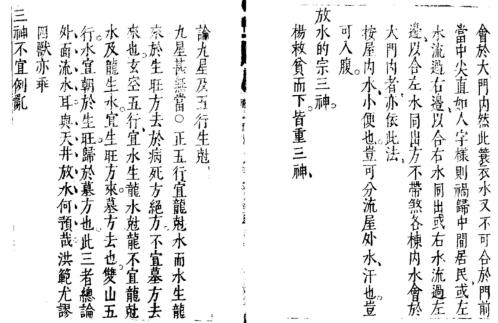 會於大門内然此簑衣水又不可合於門前
當中尖直如人字樣則禍歸中間居民或左
水流過右邊以合右水同出或右水流過左
邊以合左水同出方不帶煞各棟内水會於
大門内者亦依此法
按屋内水小便也豈可分流屋外水汗也豈
可入腹
放水的宗三神
楊救貧而下皆重三神
論九星及五行生尅
九星甚無當○正五行宜龍尅水而水生龍
來於生旺方去於病死方絶方不宜墓方去
來也玄空五行宜水生龍水尅龍不宜龍尅
水及龍生水宜生旺方來墓方去也雙山五
行水宜朝於生旺歸於墓方也此三者總論
外面流水耳與天井放水何預哉洪範尤謬
四獸亦乖
三神不宜例亂